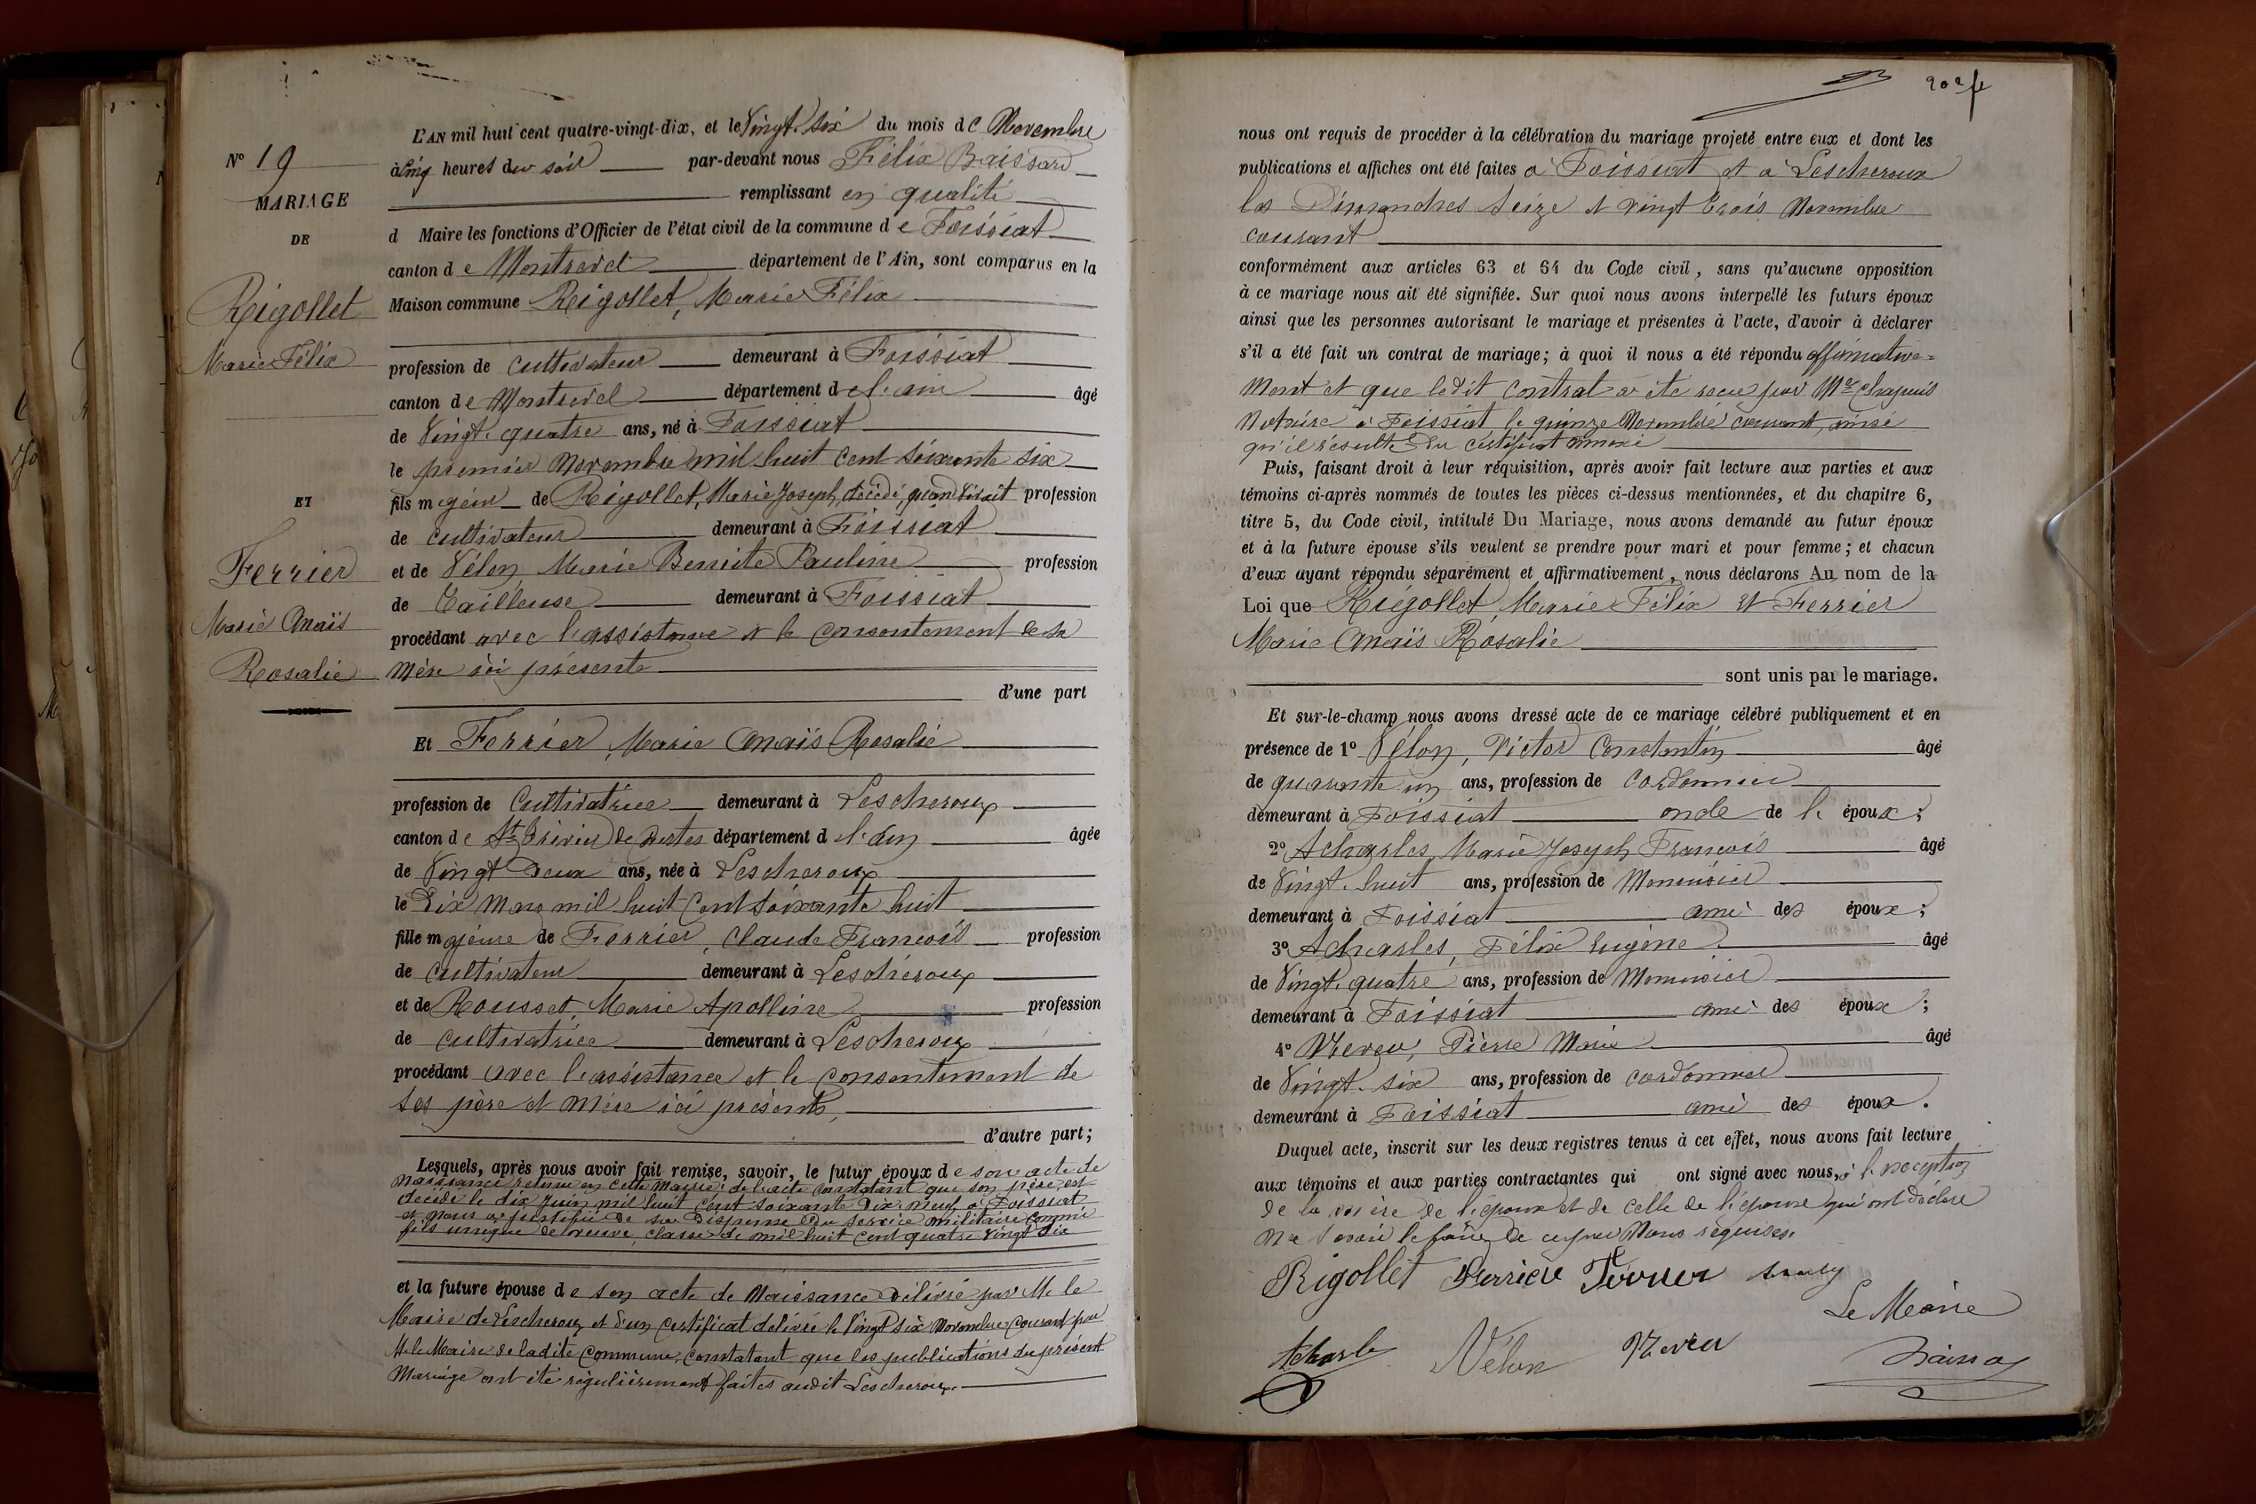 N° 19
MARIAGE
DE
Rigollet
Marie Félix
ET
Ferrier
Marie Anaïs
Rosalie
L'AN mil huit cent quatre-vingt-dix, et le Vingt-six du mois de Novembre
à cinq heures du soir par-devant nous Félix Baissard
remplissant en qualité
d Maire les fonctions d'Officier de l'état civil de la commune de Foissiat
canton de Montrevel département de l'Ain, sont comparus en la
Maison commune Rigollet, Marie Félix
profession de cultivateur demeurant à Foissiat
canton de Montrevel département de l'ain âgé
de Vingt-quatre ans, né à Foissiat
le premier Novembre mil huit cent soixante six
fils majeur de Rigollet, Marie Joseph, décédé, quand vivait profession
de cultivateur demeurant à Foissiat
et de Vélon Marie Benoite Pauline profession
de Tailleuse demeurant à Foissiat
procédant avec l'assistance et le consentement de sa
mère ici présente
d'une part
Et Ferrier, Marie Anaïs Rosalie
profession de Cultivatrice demeurant à Lescheroux
canton de St Trivier de Courtes département de l'Ain âgée
de Vingt Deux ans, née à Lescheroux
le Dix Mars mil huit Cent soixante huit
fille majeure de Ferrier, Claude François profession
de cultivateur demeurant à Lescheroux
et de Rousset, Marie Apolline profession
de cultivatrice demeurant à Lescheroux
procédant avec l'assistance et le consentement de
ses père et mère ici présents,
d'autre part;
Lesquels, après nous avoir fait remise, savoir, le futur époux de son acte de
naissance retenu en cette mairie; de l'acte constatant que son père est
décédé le dix Juin mil huit cent soixante dix neuf à Foissiat
et nous a justifié de sa Dispense du service militaire comme
fils unique de veuve, classe de mil huit cent quatre vingt six
et la future épouse de son acte de Naissance délivré par M. le
Maire de Lescheroux et d'un certificat délivré le Vingt six Novembre Courant par
M. le Maire de ladite Commune, constatant que les publications du présent
Mariage ont été régulièrement faites audit Lescheroux.
nous ont requis de procéder à la célébration du mariage projeté entre eux et dont les
publications et affiches ont été faites à Foissiat et à Lescheroux
les Dimanches seize et vingt trois Novembre
courant
conformément aux articles 63 et 64 du Code civil, sans qu'aucune opposition
à ce mariage nous ait été signifiée. Sur quoi nous avons interpellé les futurs époux
ainsi que les personnes autorisant le mariage et présentes à l'acte, d'avoir à déclarer
s'il a été fait un contrat de mariage; à quoi il nous a été répondu affirmative=
ment et que ledit contrat a été reçu par Me Chapuis
Notaire à Foissiat le quinze Novembre courant, ainsi
qu'il résulte du certificat annexé
Puis, faisant droit à leur réquisition, après avoir fait lecture aux parties et aux
témoins ci-après nommés de toutes les pièces ci-dessus mentionnées, et du chapitre 6,
titre 5, du Code civil, intitulé Du Mariage, nous avons demandé au futur époux
et à la future épouse s'ils veulent se prendre pour mari et pour femme; et chacun
d'eux ayant répondu séparément et affirmativement, nous déclarons Au nom de la
Loi que Rigollet Marie Félix et Ferrier
Marie Anaïs Rosalie
sont unis par le mariage.
Et sur-le-champ nous avons dressé acte de ce mariage célébré publiquement et en
présence de 1° Vélon, Victor Constantin âgé
de quarante un ans, profession de cordonnier
demeurant à Foissiat oncle de l' époux;
2° Acharles, Marie Joseph François âgé
de Vingt-huit ans, profession de Menuisier
demeurant à Foissiat ami des époux;
3° Acharles, Félix Eugène âgé
de Vingt-quatre ans, profession de Menuisier
demeurant à Foissiat ami des époux;
4° Mereu, Pierre Marie âgé
de Vingt-six ans, profession de cordonnier
demeurant à Foissiat ami des époux.
Duquel acte, inscrit sur les deux registres tenus à cet effet, nous avons fait lecture
aux témoins et aux parties contractantes qui ont signé avec nous, à l'exception
de la mère de l'époux et de celle de l'épouse qui ont déclaré
ne savoir le faire de ce par Nous requises.
Rigollet Ferrier
Le Maire
Acharles Vélon